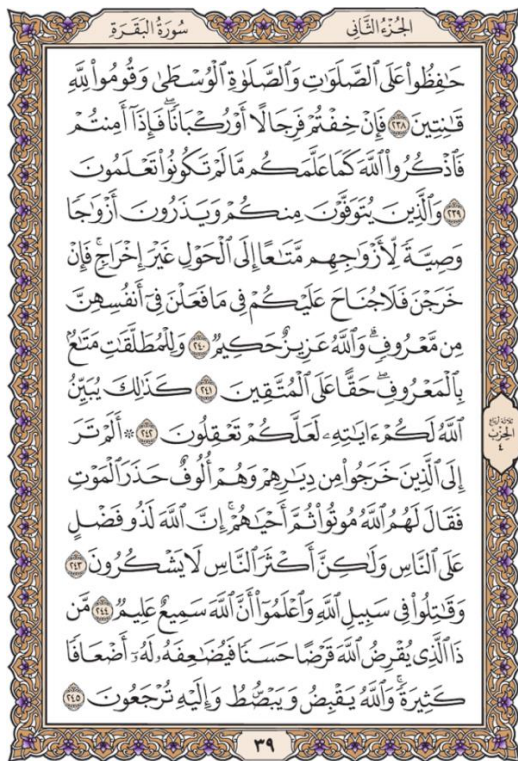 الجُزْءُ الثَّانِي
سُورَةُ البَقَرَةِ
حَٰفِظُواْ عَلَى ٱلصَّلَوَٰتِ وَٱلصَّلَوٰةِ ٱلْوُسْطَىٰ وَقُومُواْ لِلَّهِ
قَٰنِتِينَ ٢٣٨ فَإِنْ خِفْتُمْ فَرِجَالًا أَوْ رُكْبَانًاۖ فَإِذَآ أَمِنتُمْ
فَٱذْكُرُواْ ٱللَّهَ كَمَا عَلَّمَكُم مَّا لَمْ تَكُونُواْ تَعْلَمُونَ
٢٣٩ وَٱلَّذِينَ يُتَوَفَّوْنَ مِنكُمْ وَيَذَرُونَ أَزْوَٰجًا
وَصِيَّةً لِّأَزْوَٰجِهِم مَّتَٰعًا إِلَى ٱلْحَوْلِ غَيْرَ إِخْرَاجٍۚ فَإِنْ
خَرَجْنَ فَلَا جُنَاحَ عَلَيْكُمْ فِي مَا فَعَلْنَ فِيٓ أَنفُسِهِنَّ
مِن مَّعْرُوفٍۗ وَٱللَّهُ عَزِيزٌ حَكِيمٌ ٢٤٠ وَلِلْمُطَلَّقَٰتِ مَتَٰعٌۢ
بِٱلْمَعْرُوفِۖ حَقًّا عَلَى ٱلْمُتَّقِينَ ٢٤١ كَذَٰلِكَ يُبَيِّنُ
ٱللَّهُ لَكُمْ ءَايَٰتِهِۦ لَعَلَّكُمْ تَعْقِلُونَ ٢٤٢ ۞ أَلَمْ تَرَ
إِلَى ٱلَّذِينَ خَرَجُواْ مِن دِيَٰرِهِمْ وَهُمْ أُلُوفٌ حَذَرَ ٱلْمَوْتِ
فَقَالَ لَهُمُ ٱللَّهُ مُوتُواْ ثُمَّ أَحْيَٰهُمْۚ إِنَّ ٱللَّهَ لَذُو فَضْلٍ
عَلَى ٱلنَّاسِ وَلَٰكِنَّ أَكْثَرَ ٱلنَّاسِ لَا يَشْكُرُونَ ٢٤٣
وَقَٰتِلُواْ فِي سَبِيلِ ٱللَّهِ وَٱعْلَمُوٓاْ أَنَّ ٱللَّهَ سَمِيعٌ عَلِيمٌ ٢٤٤ مَّن
ذَا ٱلَّذِي يُقْرِضُ ٱللَّهَ قَرْضًا حَسَنًا فَيُضَٰعِفَهُۥ لَهُۥٓ أَضْعَافًا
كَثِيرَةًۚ وَٱللَّهُ يَقْبِضُ وَيَبْصُۜطُ وَإِلَيْهِ تُرْجَعُونَ ٢٤٥
الحِزْب
٤
٣٩